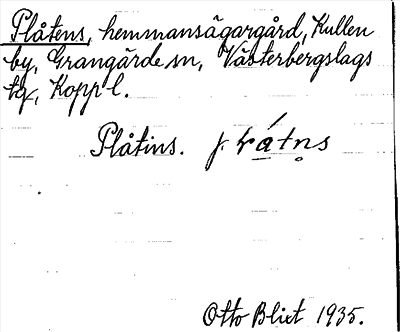 Plåtens, hemmansägargård, Kullen
by, Grangärde sn, Västerbergslags
tg, Kopp l.
Plåtins.
Otto Blixt 1935.